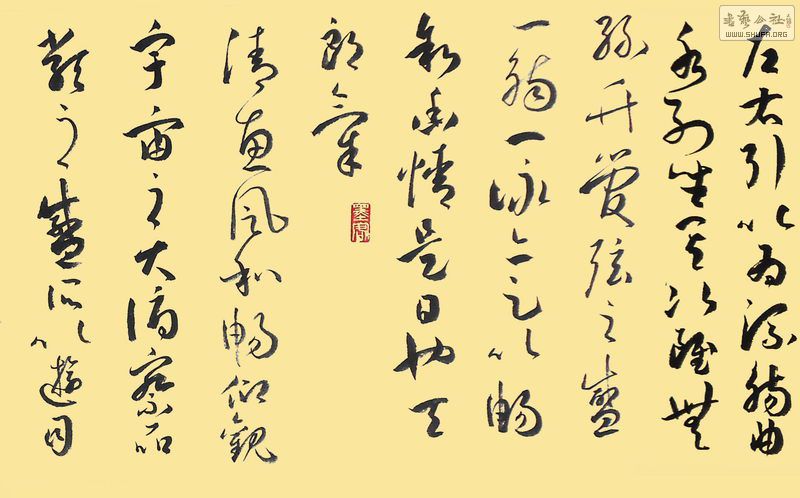 左右引以為流觴曲
水列坐其次雖無
絲竹管弦之盛
一觴一詠亦足以暢
敘幽情是日也天
朗氣
清惠風和暢仰觀
宇宙之大俯察品
類之盛所以遊目
書藝公社
WWW.SHUFA.ORG